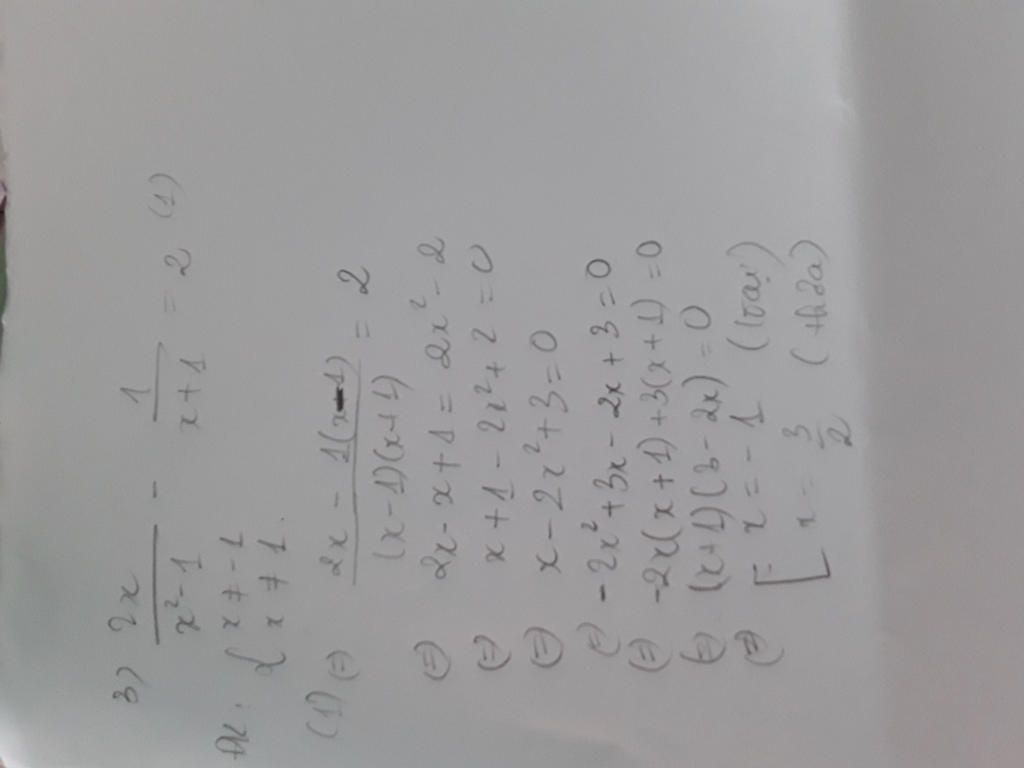 3) 2x/(x²-1) - 1/(x+1) = 2 (1)
ĐK: { x ≠ -1
x ≠ 1.
(1) (=) (2x - 1(x-1))/((x-1)(x+1)) = 2
(=) 2x - x + 1 = 2x² - 2
(=) x + 1 - 2x² + 2 = 0
(=) x - 2x² + 3 = 0
(=) -2x² + 3x - 2x + 3 = 0
(=) -2x(x+1) + 3(x+1) = 0
(=) (x+1)(3-2x) = 0
(=) [ x = -1 (loại)
x = 3/2